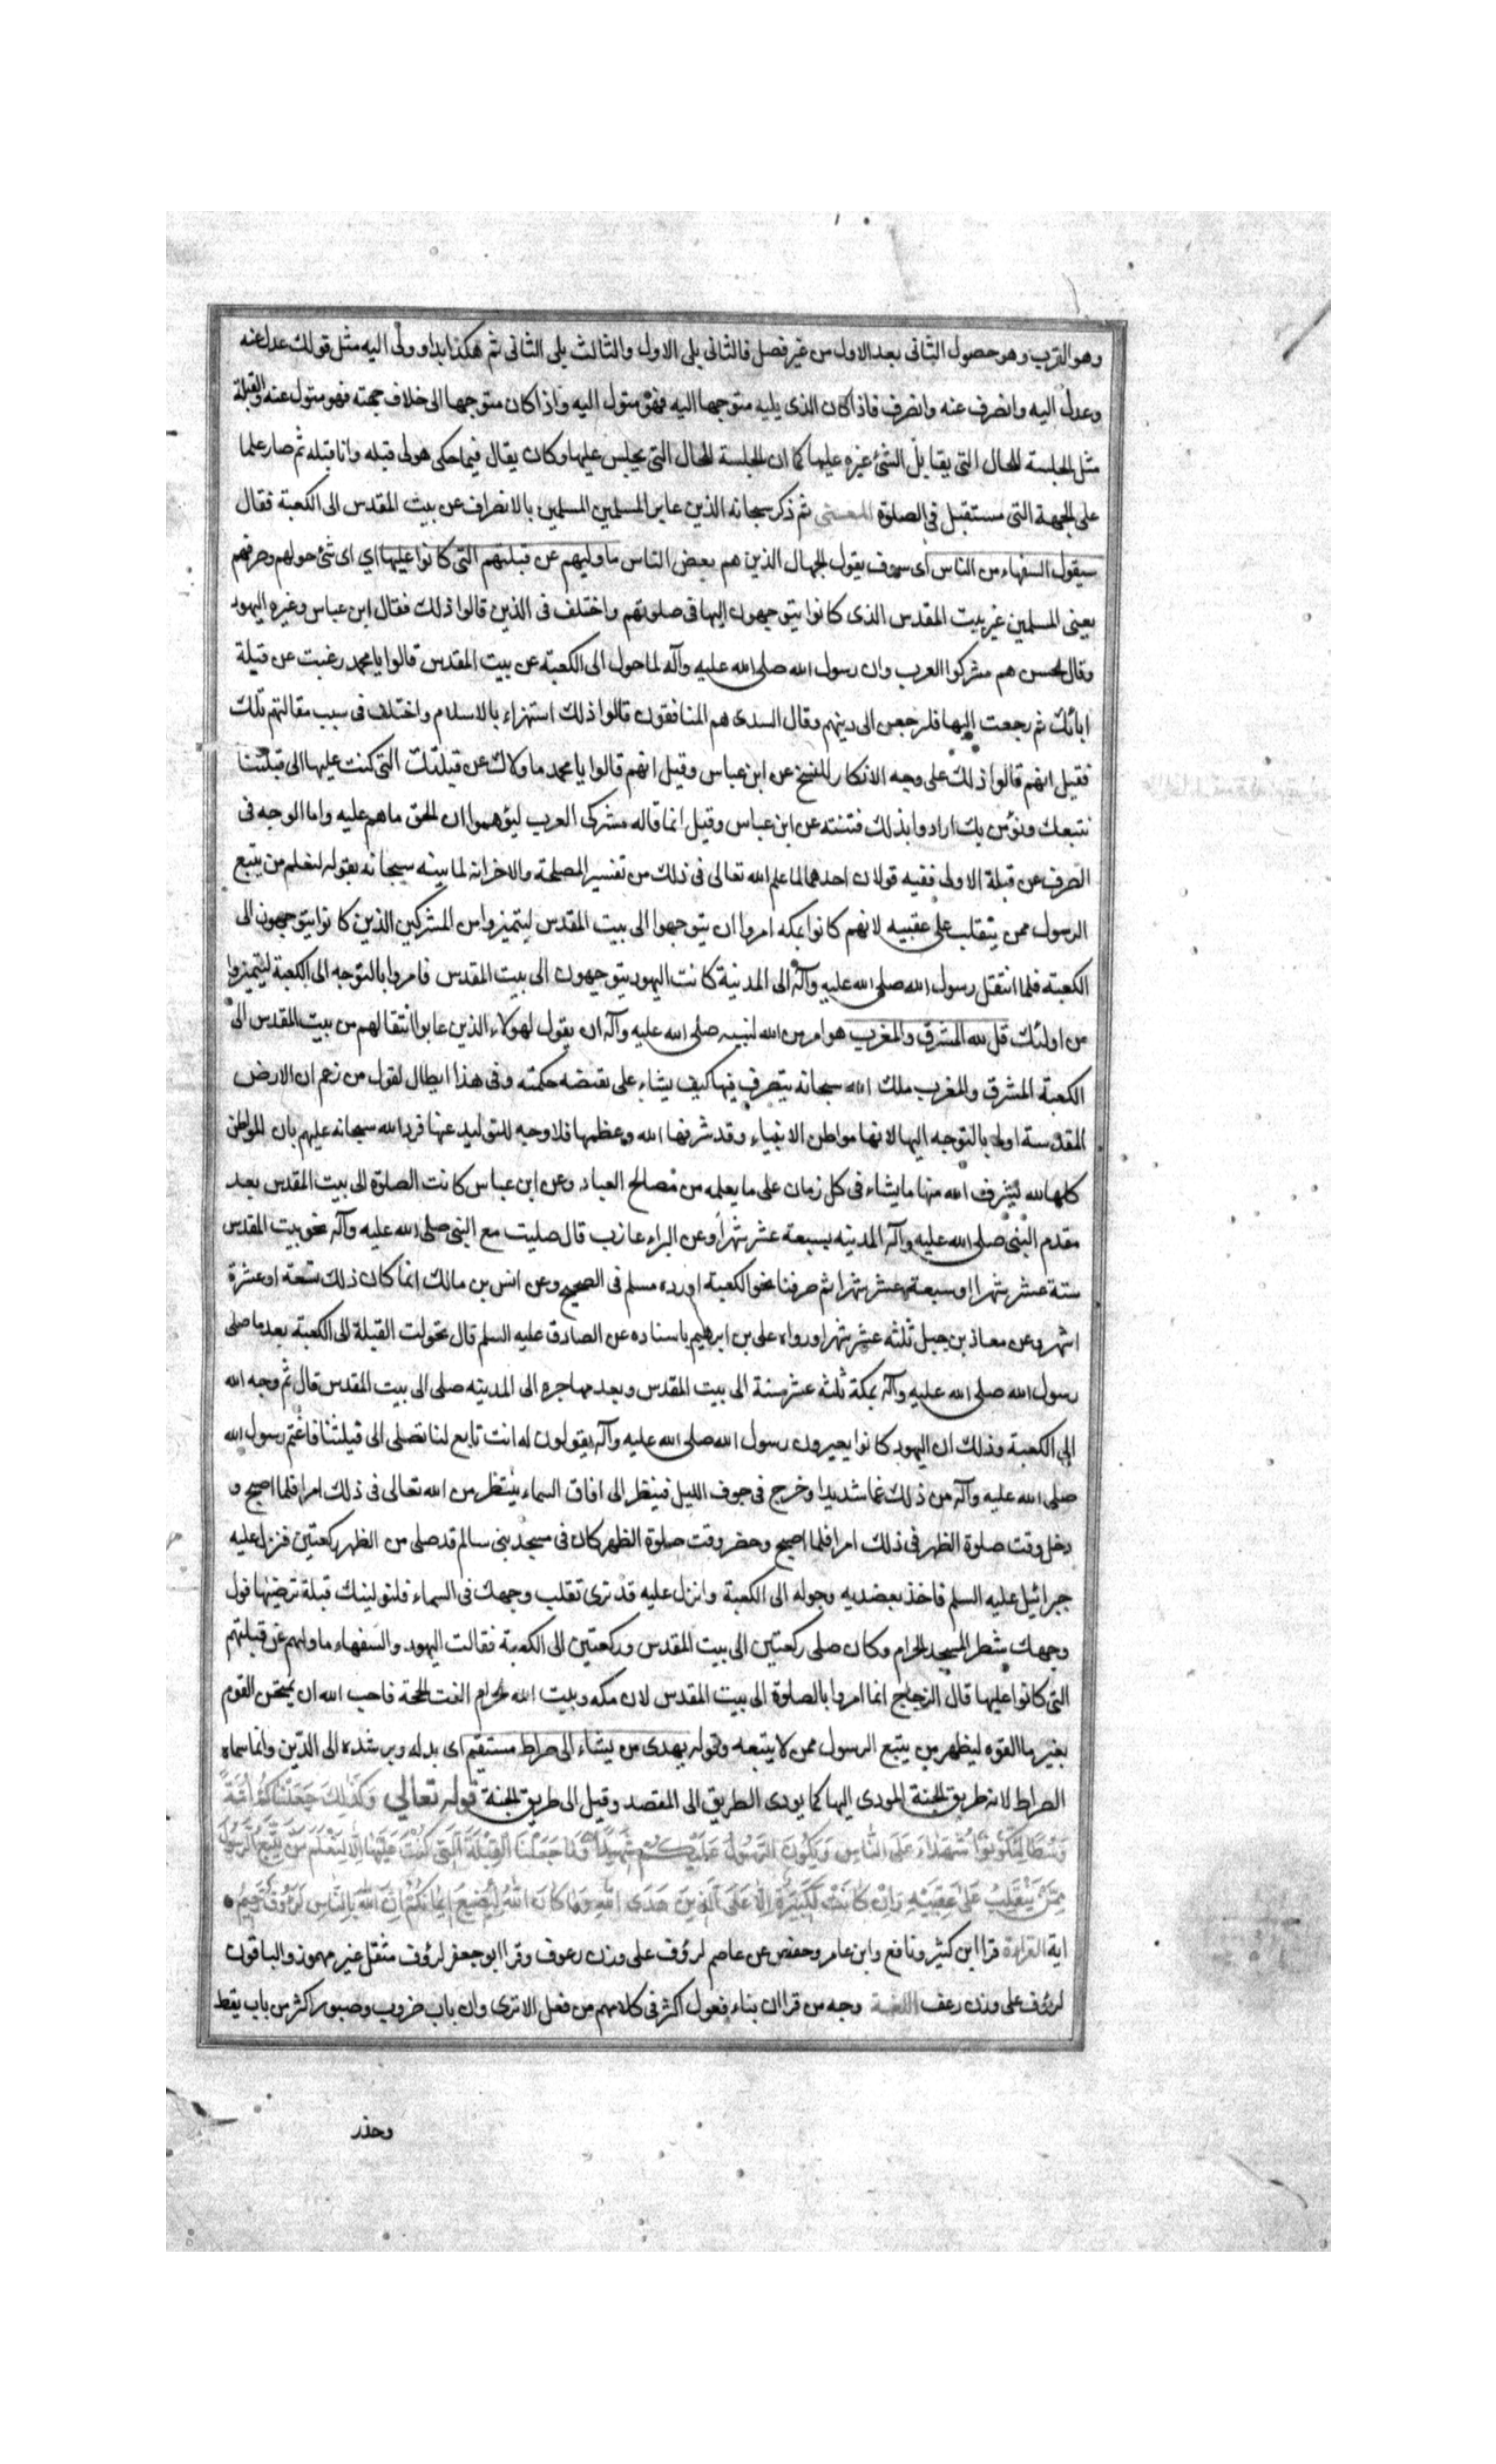 وهو القرب وهو حصول الثانى بعد الاول من غير فصل فالثانى يلى الاول والثالث يلى الثانى ثم هكذا ابدا وولى اليه مثل قولك عدل عنه
وعدل اليه وانصرف عنه وانصرف فاذا كان الذى يليه متوجها اليه فهو متول اليه واذا كان متوجها الى خلاف جهته فهو متول عنه والقبلة
مثل الجلسة للحال التى يقابل الشئ غيره عليها كما ان الجلسة للحال التى يجلس عليها وكان يقال فيما حكى هو لى قبله وانا قبله ثم صار علما
على الجهة التى مستقبل فى الصلوة المعنى ثم ذكر سبحانه الذين عابوا المسلمين المسلمين بالانصراف عن بيت المقدس الى الكعبة فقال
سيقول السفهاء من الناس اى سوف يقول الجهال الذين هم بعض الناس ما وليهم عن قبلتهم التى كانوا عليها اي اى شئ حولهم وصرفهم
يعنى المسلمين عن بيت المقدس الذى كانوا يتوجهون اليها فى صلوتهم واختلف فى الذين قالوا ذلك فقال ابن عباس وغيره اليهود
وقال الحسن هم مشركوا العرب وان رسول الله صلى الله عليه وآله لما حول الى الكعبة عن بيت المقدس قالوا يا محمد رغبت عن قبلة
ابائك ثم رجعت اليها فلرجعن الى دينهم وقال السدى هم المنافقون قالوا ذلك استهزاء بالاسلام واختلف فى سبب مقالتهم تلك
فقيل انهم قالوا ذلك على وجه الانكار للنسخ عن ابن عباس وقيل انهم قالوا يا محمد ما ولاك عن قبلتك التى كنت عليها الى قبلتنا
نتبعك ونؤمن بك ارادوا بذلك فتنته عن ابن عباس وقيل انما قاله مشركى العرب ليؤهموا ان الحق ماهم عليه واما الوجه فى
الصرف عن قبلة الاولى ففيه قولان احدهما لما علم الله تعالى فى ذلك من تفسير المصلحة والاخر انه لما بينه سبحانه بقوله لنعلم من يتبع
الرسول ممن ينقلب على عقبيه لانهم كانوا بمكه امروا ان يتوجهوا الى بيت المقدس ليتميزوا من المشركين الذين كانوا يتوجهون الى
الكعبة فلما انتقل رسول الله صلى الله عليه وآله الى المدينة كانت اليهود يتوجهون الى بيت المقدس فامروا بالتوجه الى الكعبة ليتميزوا
من اولئك قل لله المشرق والمغرب هو امر من الله لنبيه صلى الله عليه وآله ان يقول لهولاء الذين عابوا انتقالهم من بيت المقدس الى
الكعبة المشرق والمغرب ملك الله سبحانه يتصرف فيها كيف يشاء على تقتضه حكمته وفى هذا ابطال لقول من زعم ان الارض
المقدسة اولى بالتوجه اليها لانها مواطن الانبياء وقد شرفها الله وعظمها فلا وجه للتوليد عنها فرد الله سبحانه عليهم بان المواطن
كلها لله يشرف الله منها ما يشاء فى كل زمان على ما يعلمه من مصالح العباد وعن ابن عباس كانت الصلوة الى بيت المقدس بعد
مقدم النبى صلى الله عليه وآله المدينه بسبعة عشر شهرا وعن البراء عازب قال صليت مع النبى صلى الله عليه وآله نحو بيت المقدس
ستة عشر شهرا او سبعة عشر شهرا ثم صرفنا نحو الكعبة اورده مسلم فى الصحيح وعن انس بن مالك انما كان ذلك تسعة او عشرة
اشهر وعن معاذ بن جبل ثلثه عشر شهرا ورواه على بن ابرهيم باسناده عن الصادق عليه السلم قال تحولت القبلة الى الكعبة بعد ما صلى
رسول الله صلى الله عليه وآله بمكة ثلثه عشر سنة الى بيت المقدس وبعد مهاجره الى المدينه صلى الى بيت المقدس قال ثم وجه الله
الى الكعبة وذلك ان اليهود كانوا يعيرون رسول الله صلى الله عليه وآله يقولون له انت تابع لنا تصلى الى قبلتنا فاغتم رسول الله
صلى الله عليه وآله من ذلك غما شديدا وخرج فى جوف الليل فينظر الى افاق السماء ينتظر من الله تعالى فى ذلك امرا فلما اصبح و
دخل وقت صلوة الظهر فى ذلك امرا فلما اصبح وحضر وقت صلوة الظهر كان فى مسجد بنى سالم قد صلى من الظهر ركعتين فنزل عليه
جبرائيل عليه السلم فاخذ بعضديه وحوله الى الكعبة وانزل عليه قد ترى تقلب وجهك فى السماء فلنولينك قبلة ترضيها فول
وجهك شطر المسجد الحرام وكان صلى ركعتين الى بيت المقدس وركعتين الى الكعبة فقالت اليهود والسفهاء ما وليهم عن قبلتهم
التى كانوا عليها قال الزجاج انما امروا بالصلوة الى بيت المقدس لان مكه وبيت الله الحرام الفت الحجة فاحب الله ان يمتحن القوم
بغير ما القوه ليظهر من يتبع الرسول ممن لا يتبعه وقوله يهدى من يشاء الى صراط مستقيم اى يدله ويرشده الى الدين وانما سماه
الصراط لانه طريق الجنة المودى اليها كما يودى الطريق الى المقصد وقيل الى طريق الجنة قوله تعالى وَكَذَلِكَ جَعَلْنَاكُمْ أُمَّةً
وَسَطًا لِتَكُونُوا شُهَدَاءَ عَلَى النَّاسِ وَيَكُونَ الرَّسُولُ عَلَيْكُمْ شَهِيدًا وَمَا جَعَلْنَا الْقِبْلَةَ الَّتِي كُنْتَ عَلَيْهَا إِلَّا لِنَعْلَمَ مَنْ يَتَّبِعُ الرَّسُولَ
مِمَّنْ يَنْقَلِبُ عَلَى عَقِبَيْهِ وَإِنْ كَانَتْ لَكَبِيرَةً إِلَّا عَلَى الَّذِينَ هَدَى اللهُ وَمَا كَانَ اللهُ لِيُضِيعَ إِيمَانَكُمْ إِنَّ اللهَ بِالنَّاسِ لَرَؤُفٌ رَحِيمٌ
اية القراءة قرا ابن كثير ونافع وابن عامر وحفص عن عاصم لرؤف على وزن رعوف وقرا ابو جعفر لروف مثقل غير مهموز والباقون
لرؤف على وزن رعف اللغة وجه من قرا ان بناء فعول اكثر فى كلامهم من فعل الا ترى وان باب ضروب وصبور اكثر من باب يقظ
وحذر